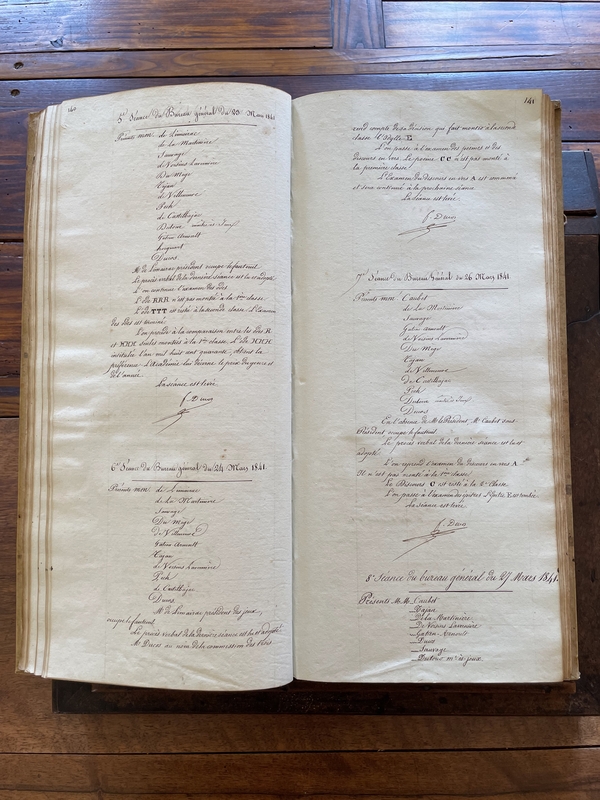 140
5e Séance du Bureau général du 23 Mars 1841
Présents mm. de Limairac
de la Martinière
Sauvage
de Voisins Lavernière
Du Mège
Cajan
de Villeneuve
Pech
de Castelbajac
Dutour mtre ès Jeux
Gatien Arnoult
Ducos
M. de Limairac président occupe le fauteuil.
Le procès verbal de la dernière séance est lu et adopté
l'on continue l'examen des odes.
L'ode RRR n'est pas montée à la 1ère classe.
L'ode TTT est restée à la seconde classe. L'examen
des odes est terminé.
L'on procède à la comparaison entre les odes R
et XXX seules montées à la 1ère classe. L'ode XXX
intitulée l'an mil huit cent quarante, obtient la
préférence. L'académie lui décerne le prix du genre et
de l'année.
La séance est levée
f. Ducos
6e Séance du Bureau général du 24 Mars 1841.
Présents mm. de Limairac
de la Martinière
Sauvage
Du Mège
de Villeneuve
Gatien Arnoult
Cajan
de Voisins Lavernière
Pech
de Castelbajac
Ducos
M. de Limairac président des jeux
occupe le fauteuil.
Le procès verbal de la dernière séance est lu et adopté.
Mr Ducos au nom de la commission des
141
rend compte de sa décision qui fait monter à la seconde
classe l'Idylle E.
L'on passe à l'examen des poèmes et des
discours en vers. Le poème CC n'est pas monté à
la première classe.
L'Examen du discours en vers A est commencé
et sera continué à la prochaine séance
La séance est levée
f. Ducos
7e Séance du Bureau Général du 26 Mars 1841
Présents mm. Caubet
de la Martinière
Sauvage
Gatien Arnoult
de Voisins Lavernière
Du Mège
Cajan
de Villeneuve
de Castelbajac
Pech
Dutour mtre ès Jeux
Ducos
En l'absence de M. le Président, M. Caubet sous
Président occupe le fauteuil.
Le procès verbal de la dernière séance est lu et
adopté.
L'on reprend l'examen du discours en vers A.
Il n'est pas monté à la 1ère classe.
Le Discours C est resté à la 2e Classe
L'on passe à l'examen des épitres. L'épitre F. est rentrée
La séance est levée
f. Ducos
8e Séance du bureau général du 27 Mars 1841.
Présents M.M. Caubet
Cajan
de la Martinière
de Voisins Lavernière
Gatien Arnoult
Ducos
Sauvage
Dutour mtre ès jeux